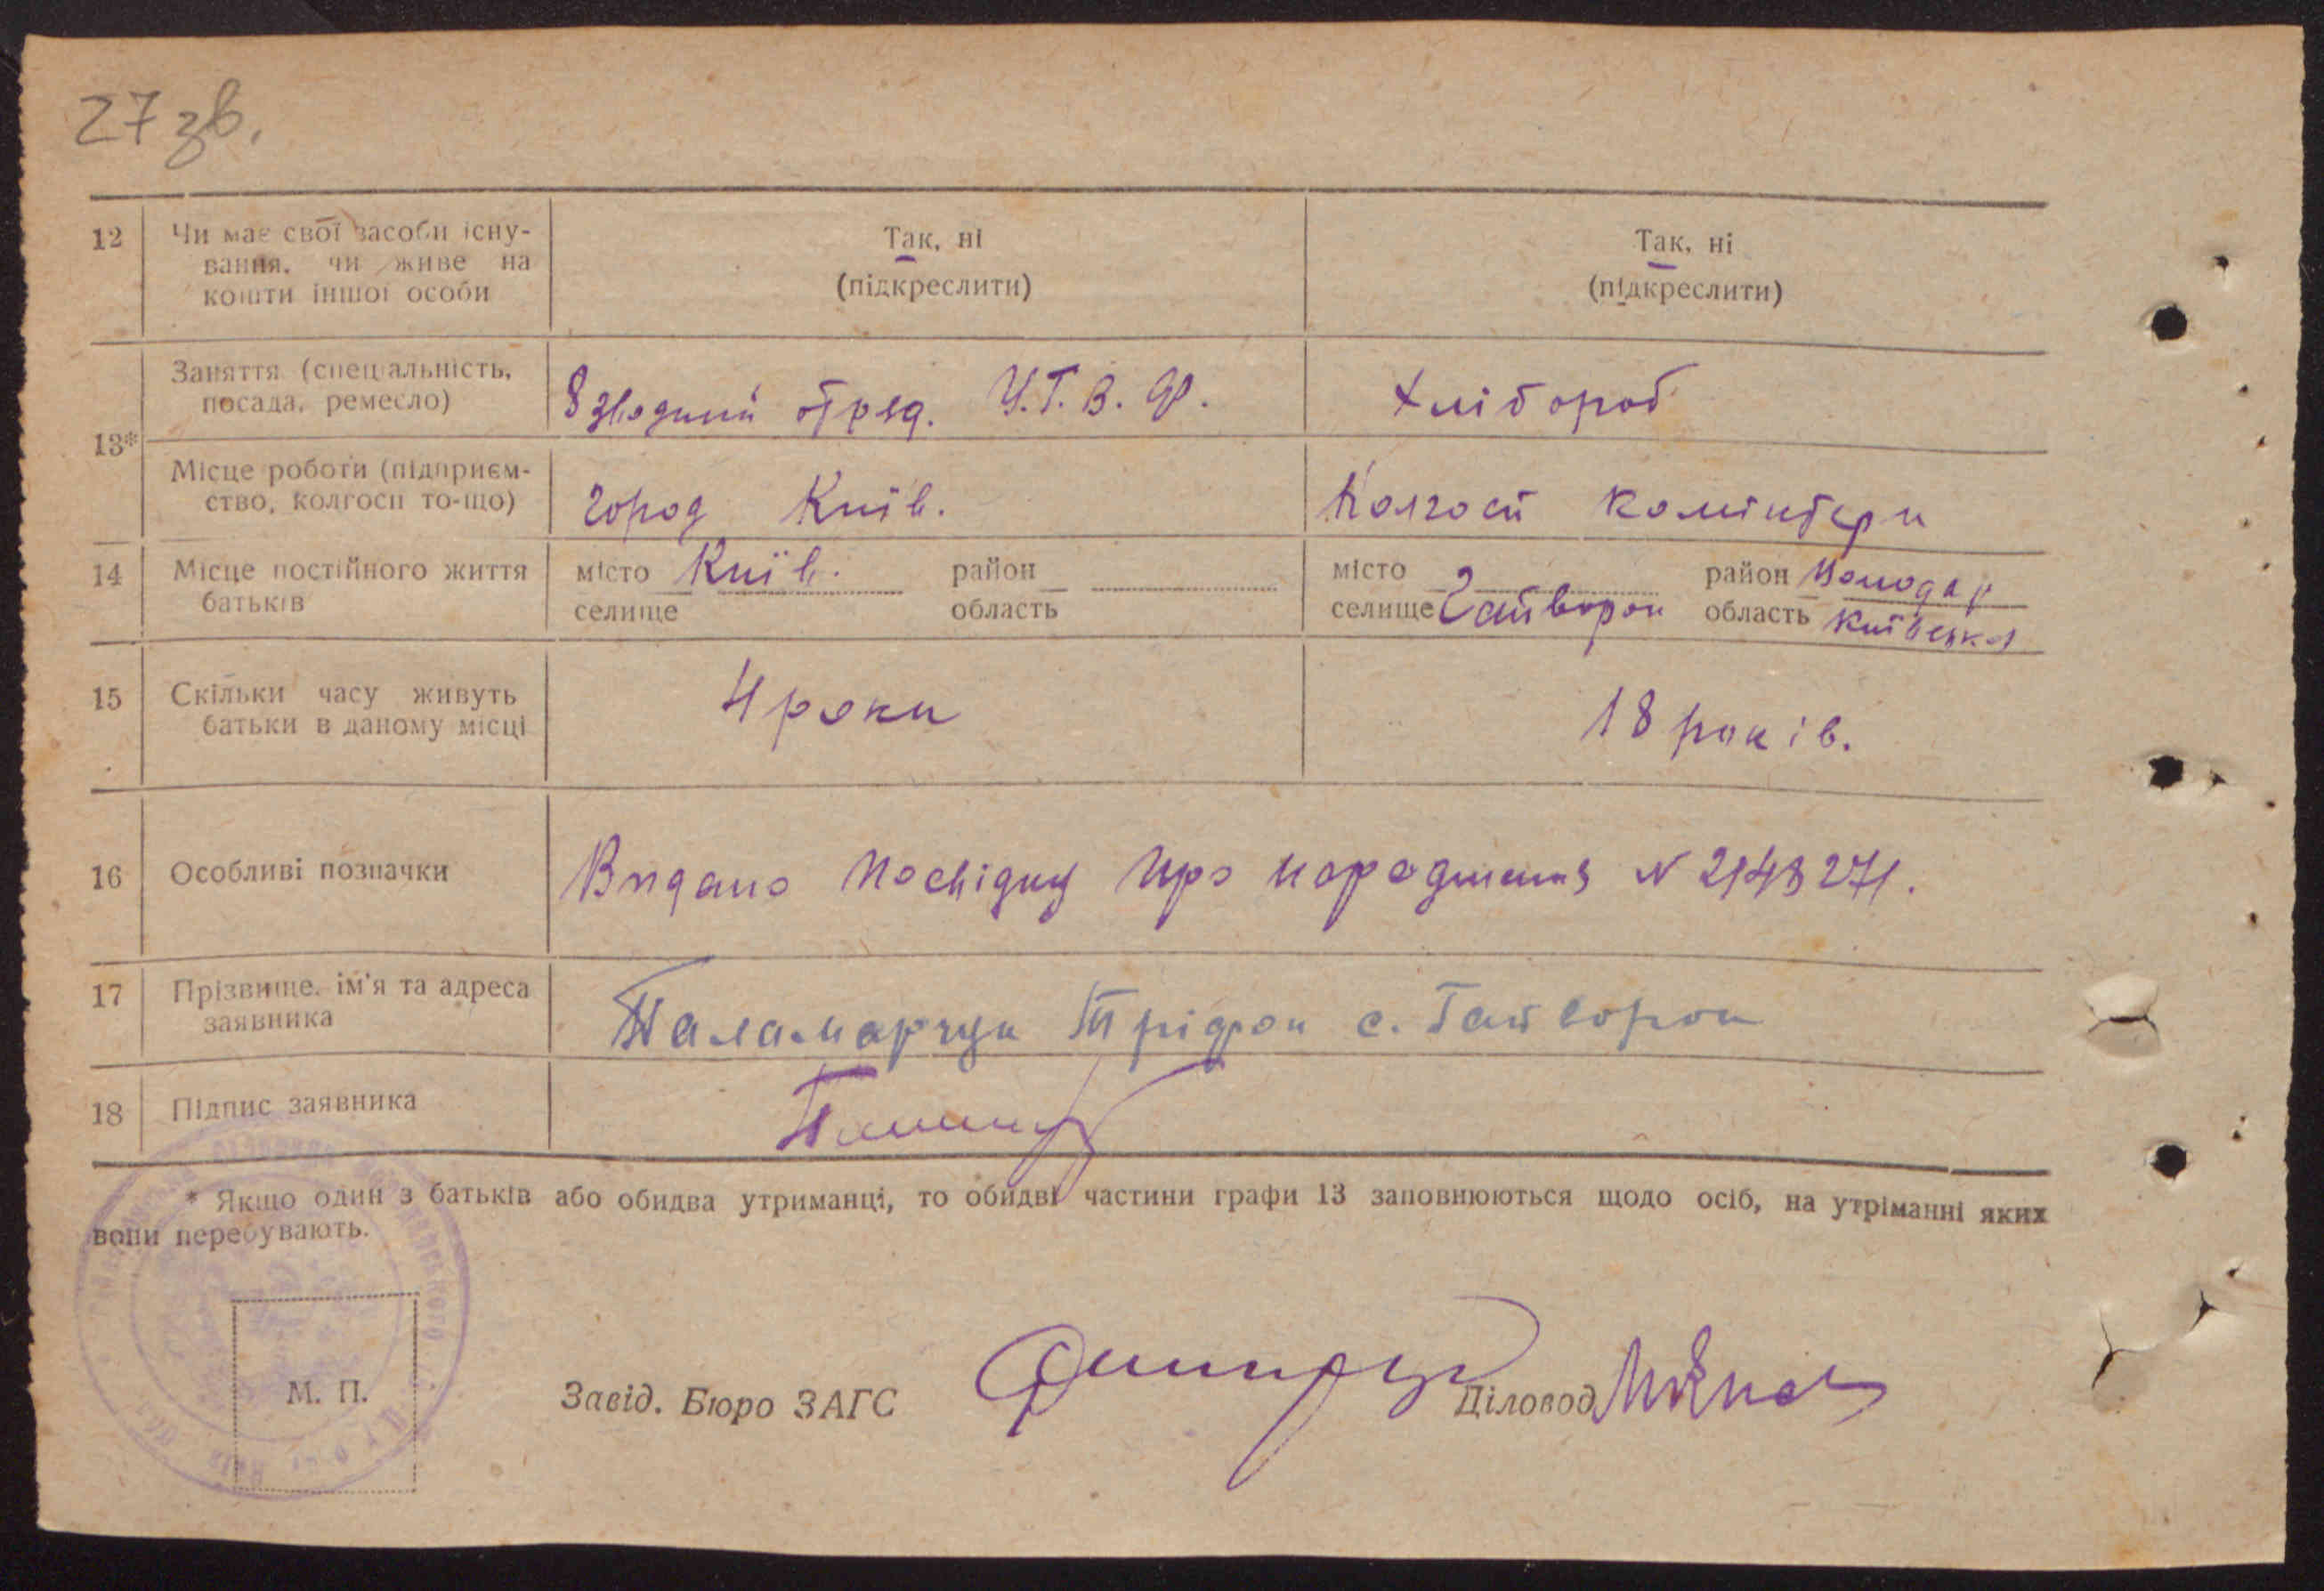 27 зв.
12
Чи має свої засоби існу-
вання, чи живе на
кошти іншої особи
Так, ні
(підкреслити)
Так, ні
(підкреслити)
13*
Заняття (спеціальність,
посада, ремесло)
8 зводний отряд. У.Г.В.Ф.
Хлібороб
Місце роботи (підприєм-
ство, колгосп то-що)
город Київ.
Колгосп Комінтерн
14
Місце постійного життя
батьків
місто Київ. район
селище область
місто район
селище Гайворон область Київська
15
Скільки часу живуть
батьки в даному місці
4 роки
18 років.
16
Особливі позначки
Видано посвідку про народження N 2148271.
17
Прізвище, ім'я та адреса
заявника
Паламарчук Тріфон с. Гайворон
18
Підпис заявника
* Якщо один з батьків або обидва утриманці, то обидві частини графи 13 заповнюються щодо осіб, на утріманні яких
вони перебувають.
М. П.
Завід. Бюро ЗАГС
Діловод